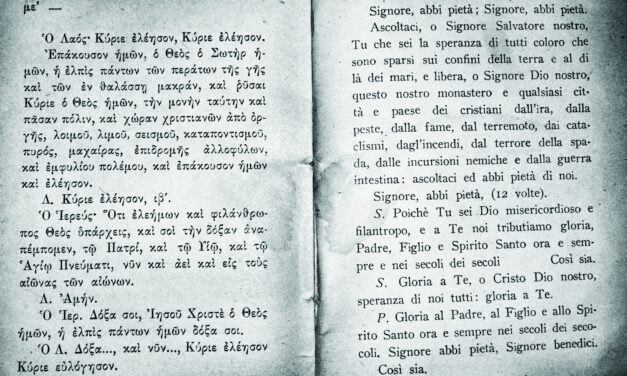 με' —
Ὁ Λαός· Κύριε ἐλέησον, Κύριε ἐλέησον.
Ἐπάκουσον ἡμῶν, ὁ Θεὸς ὁ Σωτὴρ ἡ-
μῶν, ἡ ἐλπὶς πάντων τῶν περάτων τῆς γῆς
καὶ τῶν ἐν θαλάσσῃ μακράν, καὶ ῥῦσαι
Κύριε ὁ Θεὸς ἡμῶν, τὴν μονὴν ταύτην καὶ
πᾶσαν πόλιν, καὶ χώραν χριστιανῶν ἀπὸ ὀρ-
γῆς, λοιμοῦ, λιμοῦ, σεισμοῦ, καταποντισμοῦ,
πυρός, μαχαίρας, ἐπιδρομῆς ἀλλοφύλων,
καὶ ἐμφυλίου πολέμου, καὶ ἐπάκουσον ἡμῶν
καὶ ἐλέησον.
Λ. Κύριε ἐλέησον, ιβ'.
Ὁ Ἱερεύς· Ὅτι ἐλεήμων καὶ φιλάνθρω-
πος Θεὸς ὑπάρχεις, καὶ σοὶ τὴν δόξαν ἀνα-
πέμπομεν, τῷ Πατρί, καὶ τῷ Υἱῷ, καὶ τῷ
Ἁγίῳ Πνεύματι, νῦν καὶ ἀεὶ καὶ εἰς τοὺς
αἰῶνας τῶν αἰώνων.
Λ. Ἀμήν.
Ὁ Ἱερ. Δόξα σοι, Ἰησοῦ Χριστὲ ὁ Θεὸς
ἡμῶν, ἡ ἐλπὶς πάντων ἡμῶν δόξα σοι.
Ὁ Λ. Δόξα..., καὶ νῦν..., Κύριε ἐλέησον
Κύριε εὐλόγησον.
Signore, abbi pietà; Signore, abbi pietà.
Ascoltaci, o Signore Salvatore nostro,
Tu che sei la speranza di tutti coloro che
sono sparsi sui confini della terra e al di
là dei mari, e libera, o Signore Dio nostro,
questo nostro monastero e qualsiasi cit-
tà e paese dei cristiani dall'ira, dalla
peste, dalla fame, dal terremoto, dai cata-
clismi, dagl'incendi, dal terrore della spa-
da, dalle incursioni nemiche e dalla guerra
intestina: ascoltaci ed abbi pietà di noi.
Signore, abbi pietà, (12 volte).
S. Poichè Tu sei Dio misericordioso e
filantropo, e a Te noi tributiamo gloria,
Padre, Figlio e Spirito Santo ora e sem-
pre e nei secoli dei secoli Così sia.
S. Gloria a Te, o Cristo Dio nostro,
speranza di noi tutti: gloria a Te.
P. Gloria al Padre, al Figlio e allo Spi-
rito Santo ora e sempre nei secoli dei seco-
coli. Signore abbi pietà, Signore benedici.
Così sia.